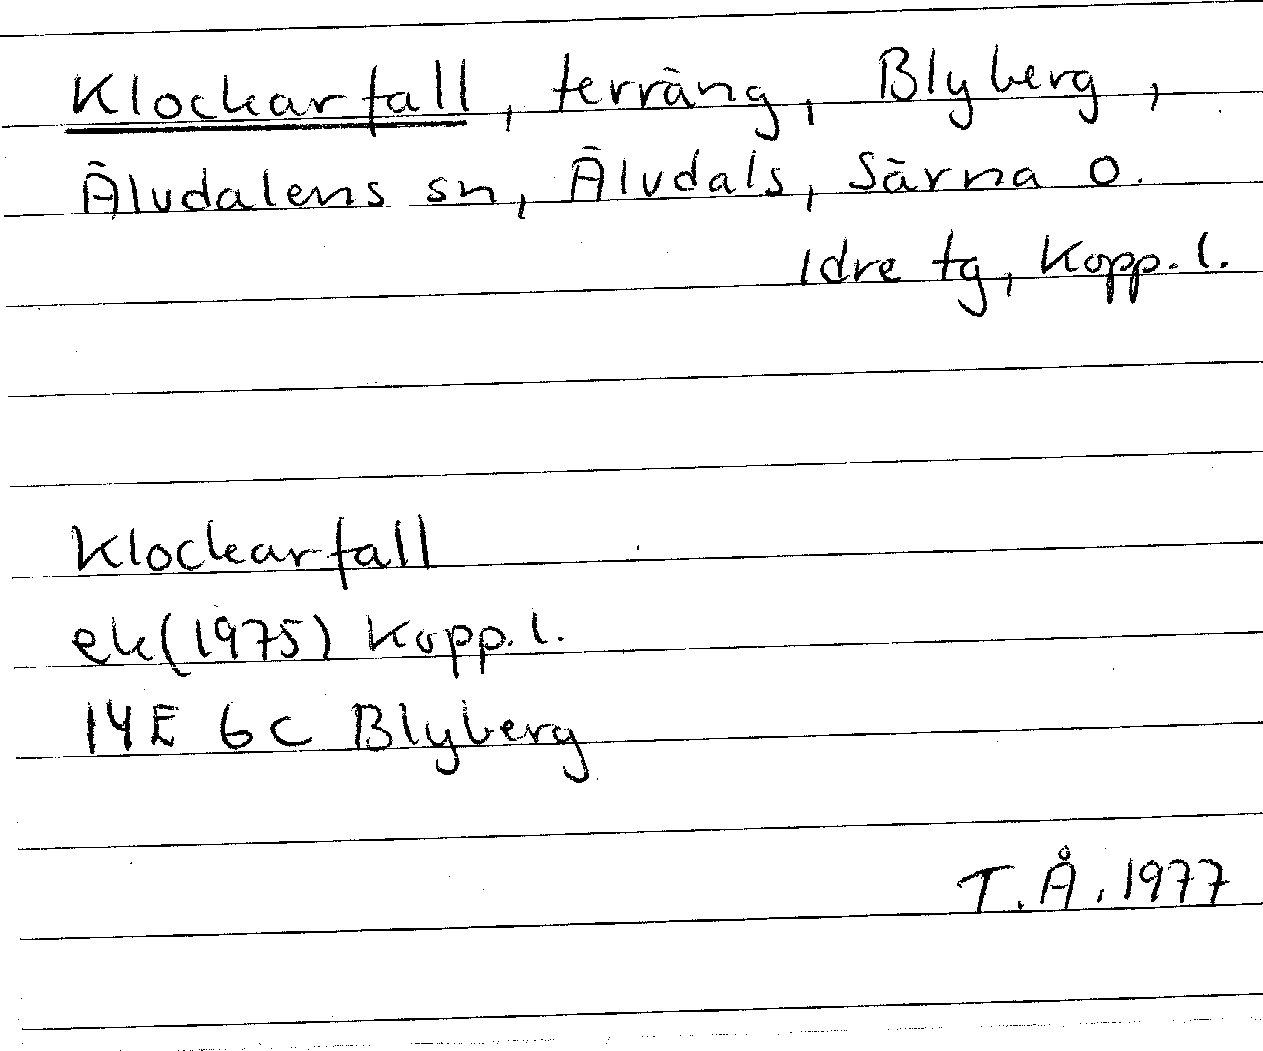 Klockarfall, terräng, Blyberg,
Älvdalens sn, Älvdals, Särna o.
Idre tg, Kopp. l.
Klockarfall
ek (1975) Kopp. l.
14E 6c Blyberg
T. Å. 1977